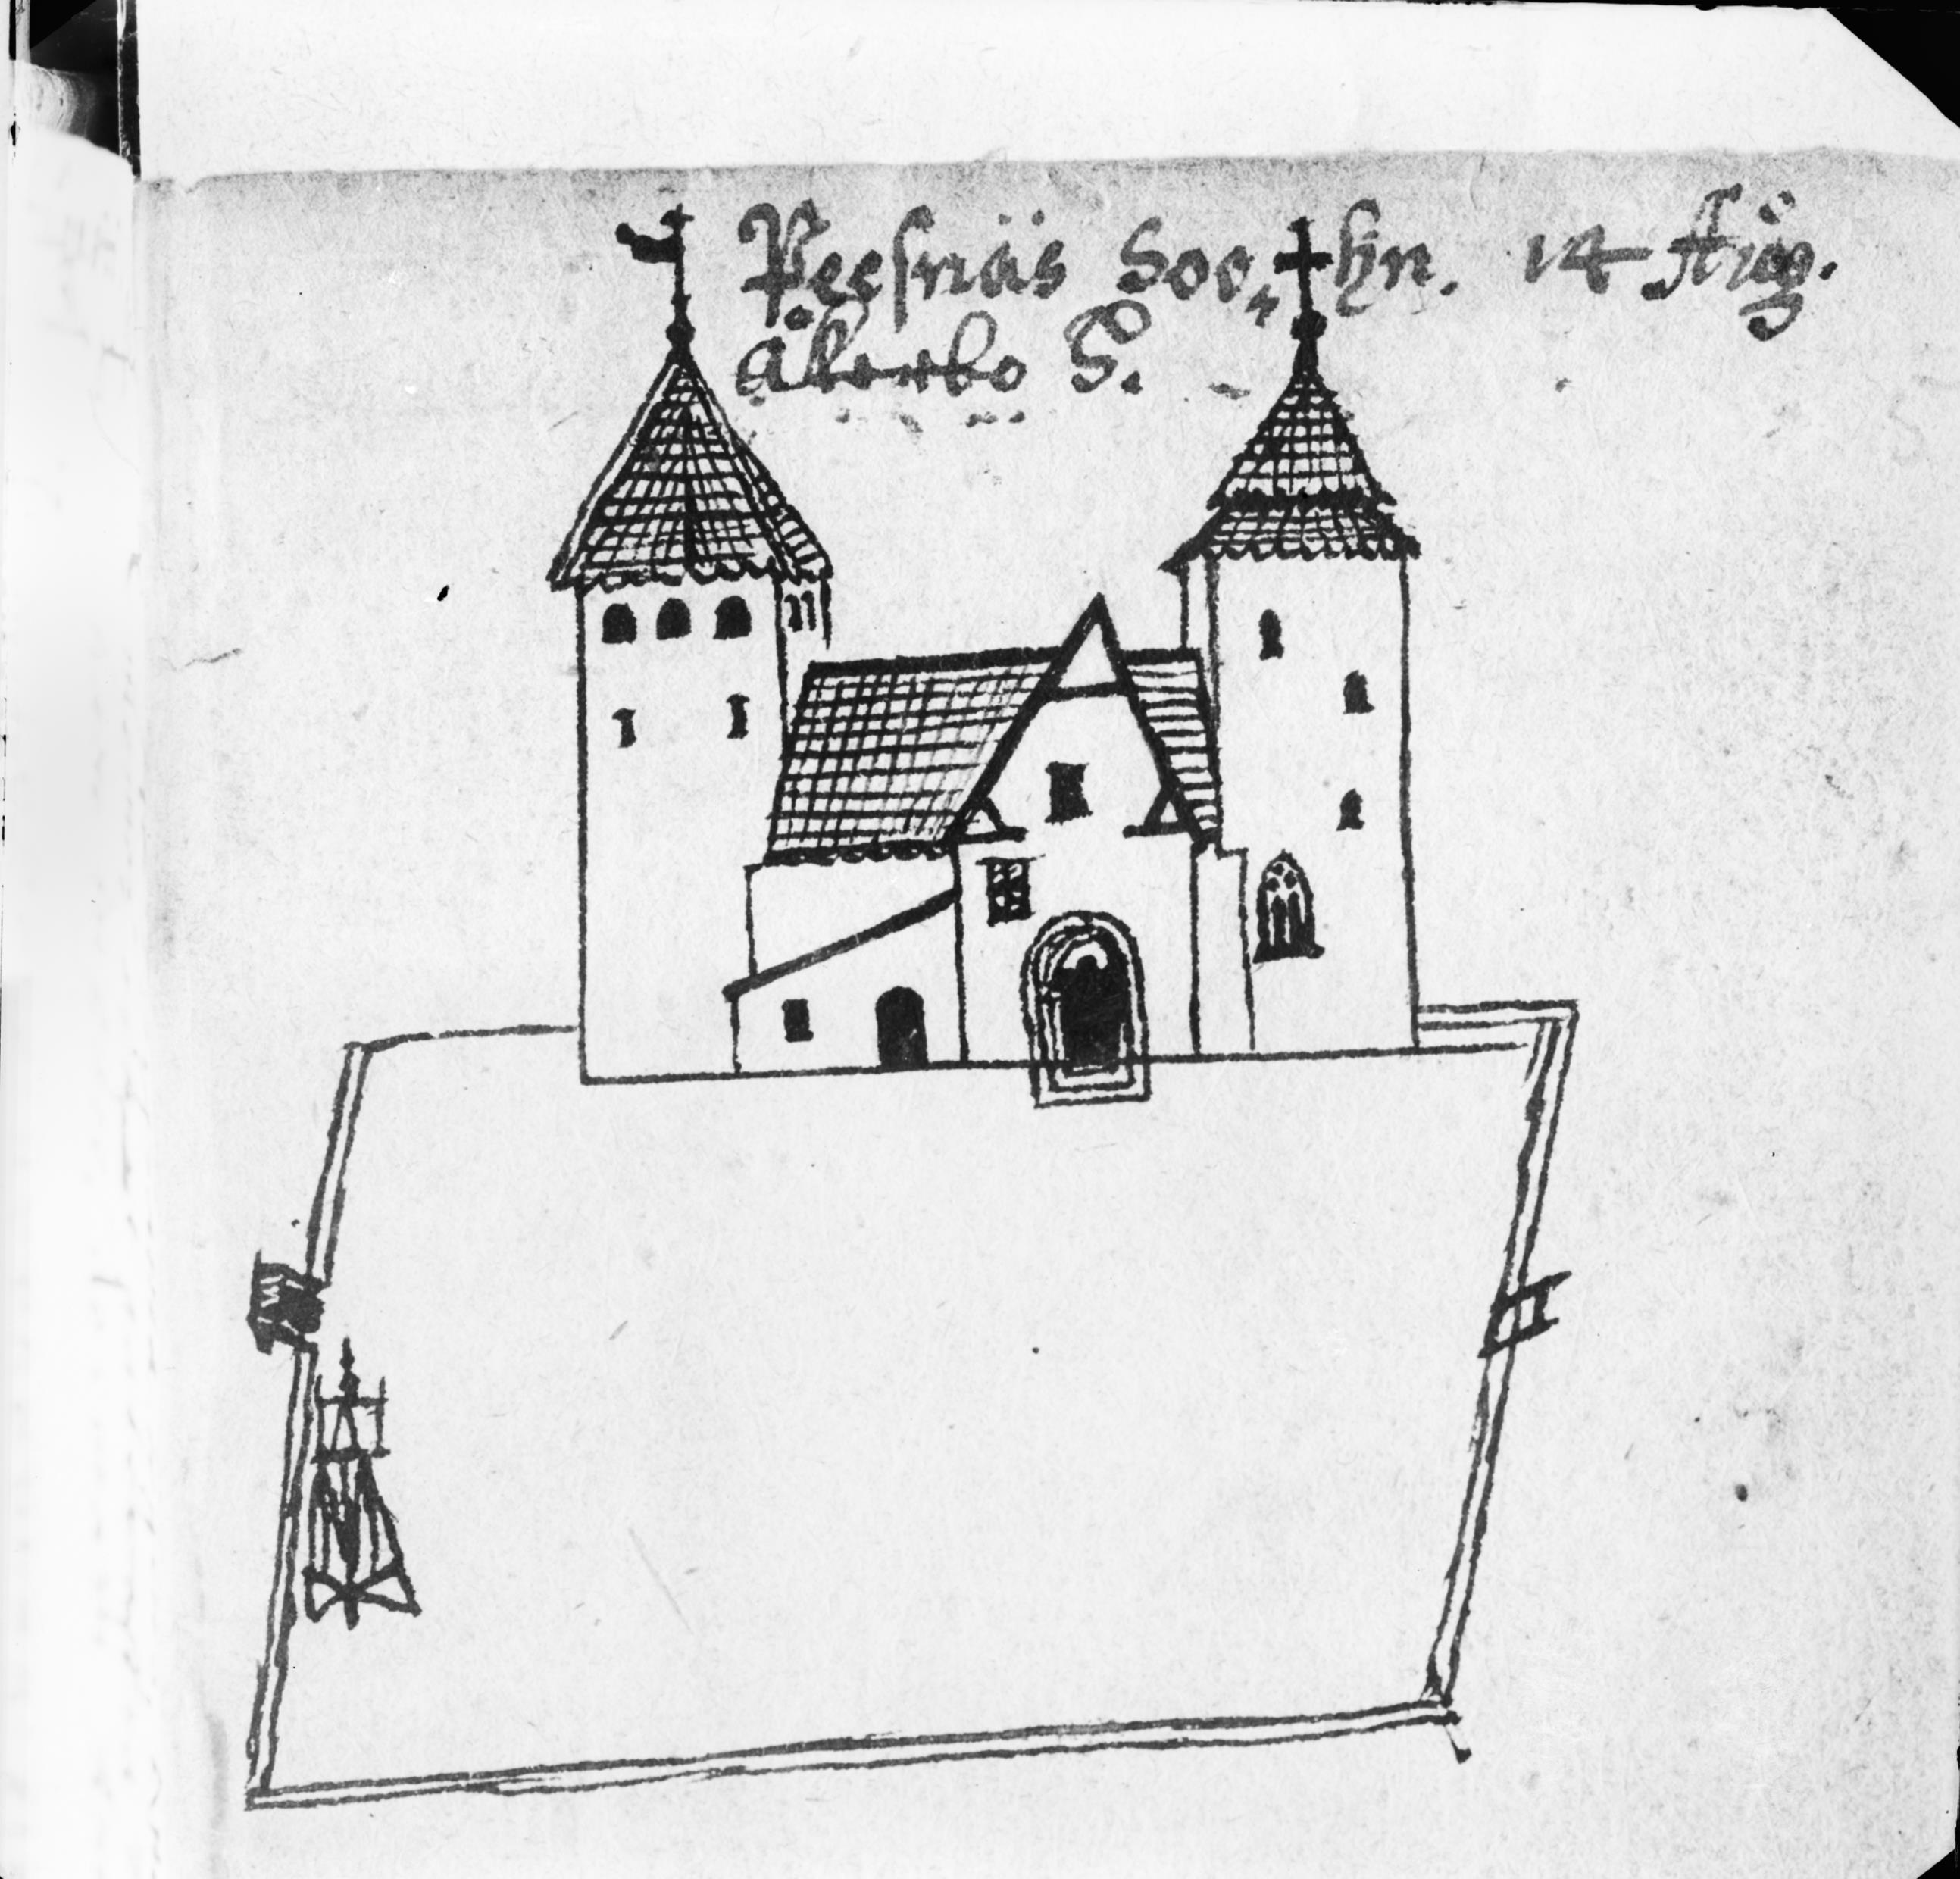 Peesnäs Soc„kn. 14 Aug.
Åkerbo H.